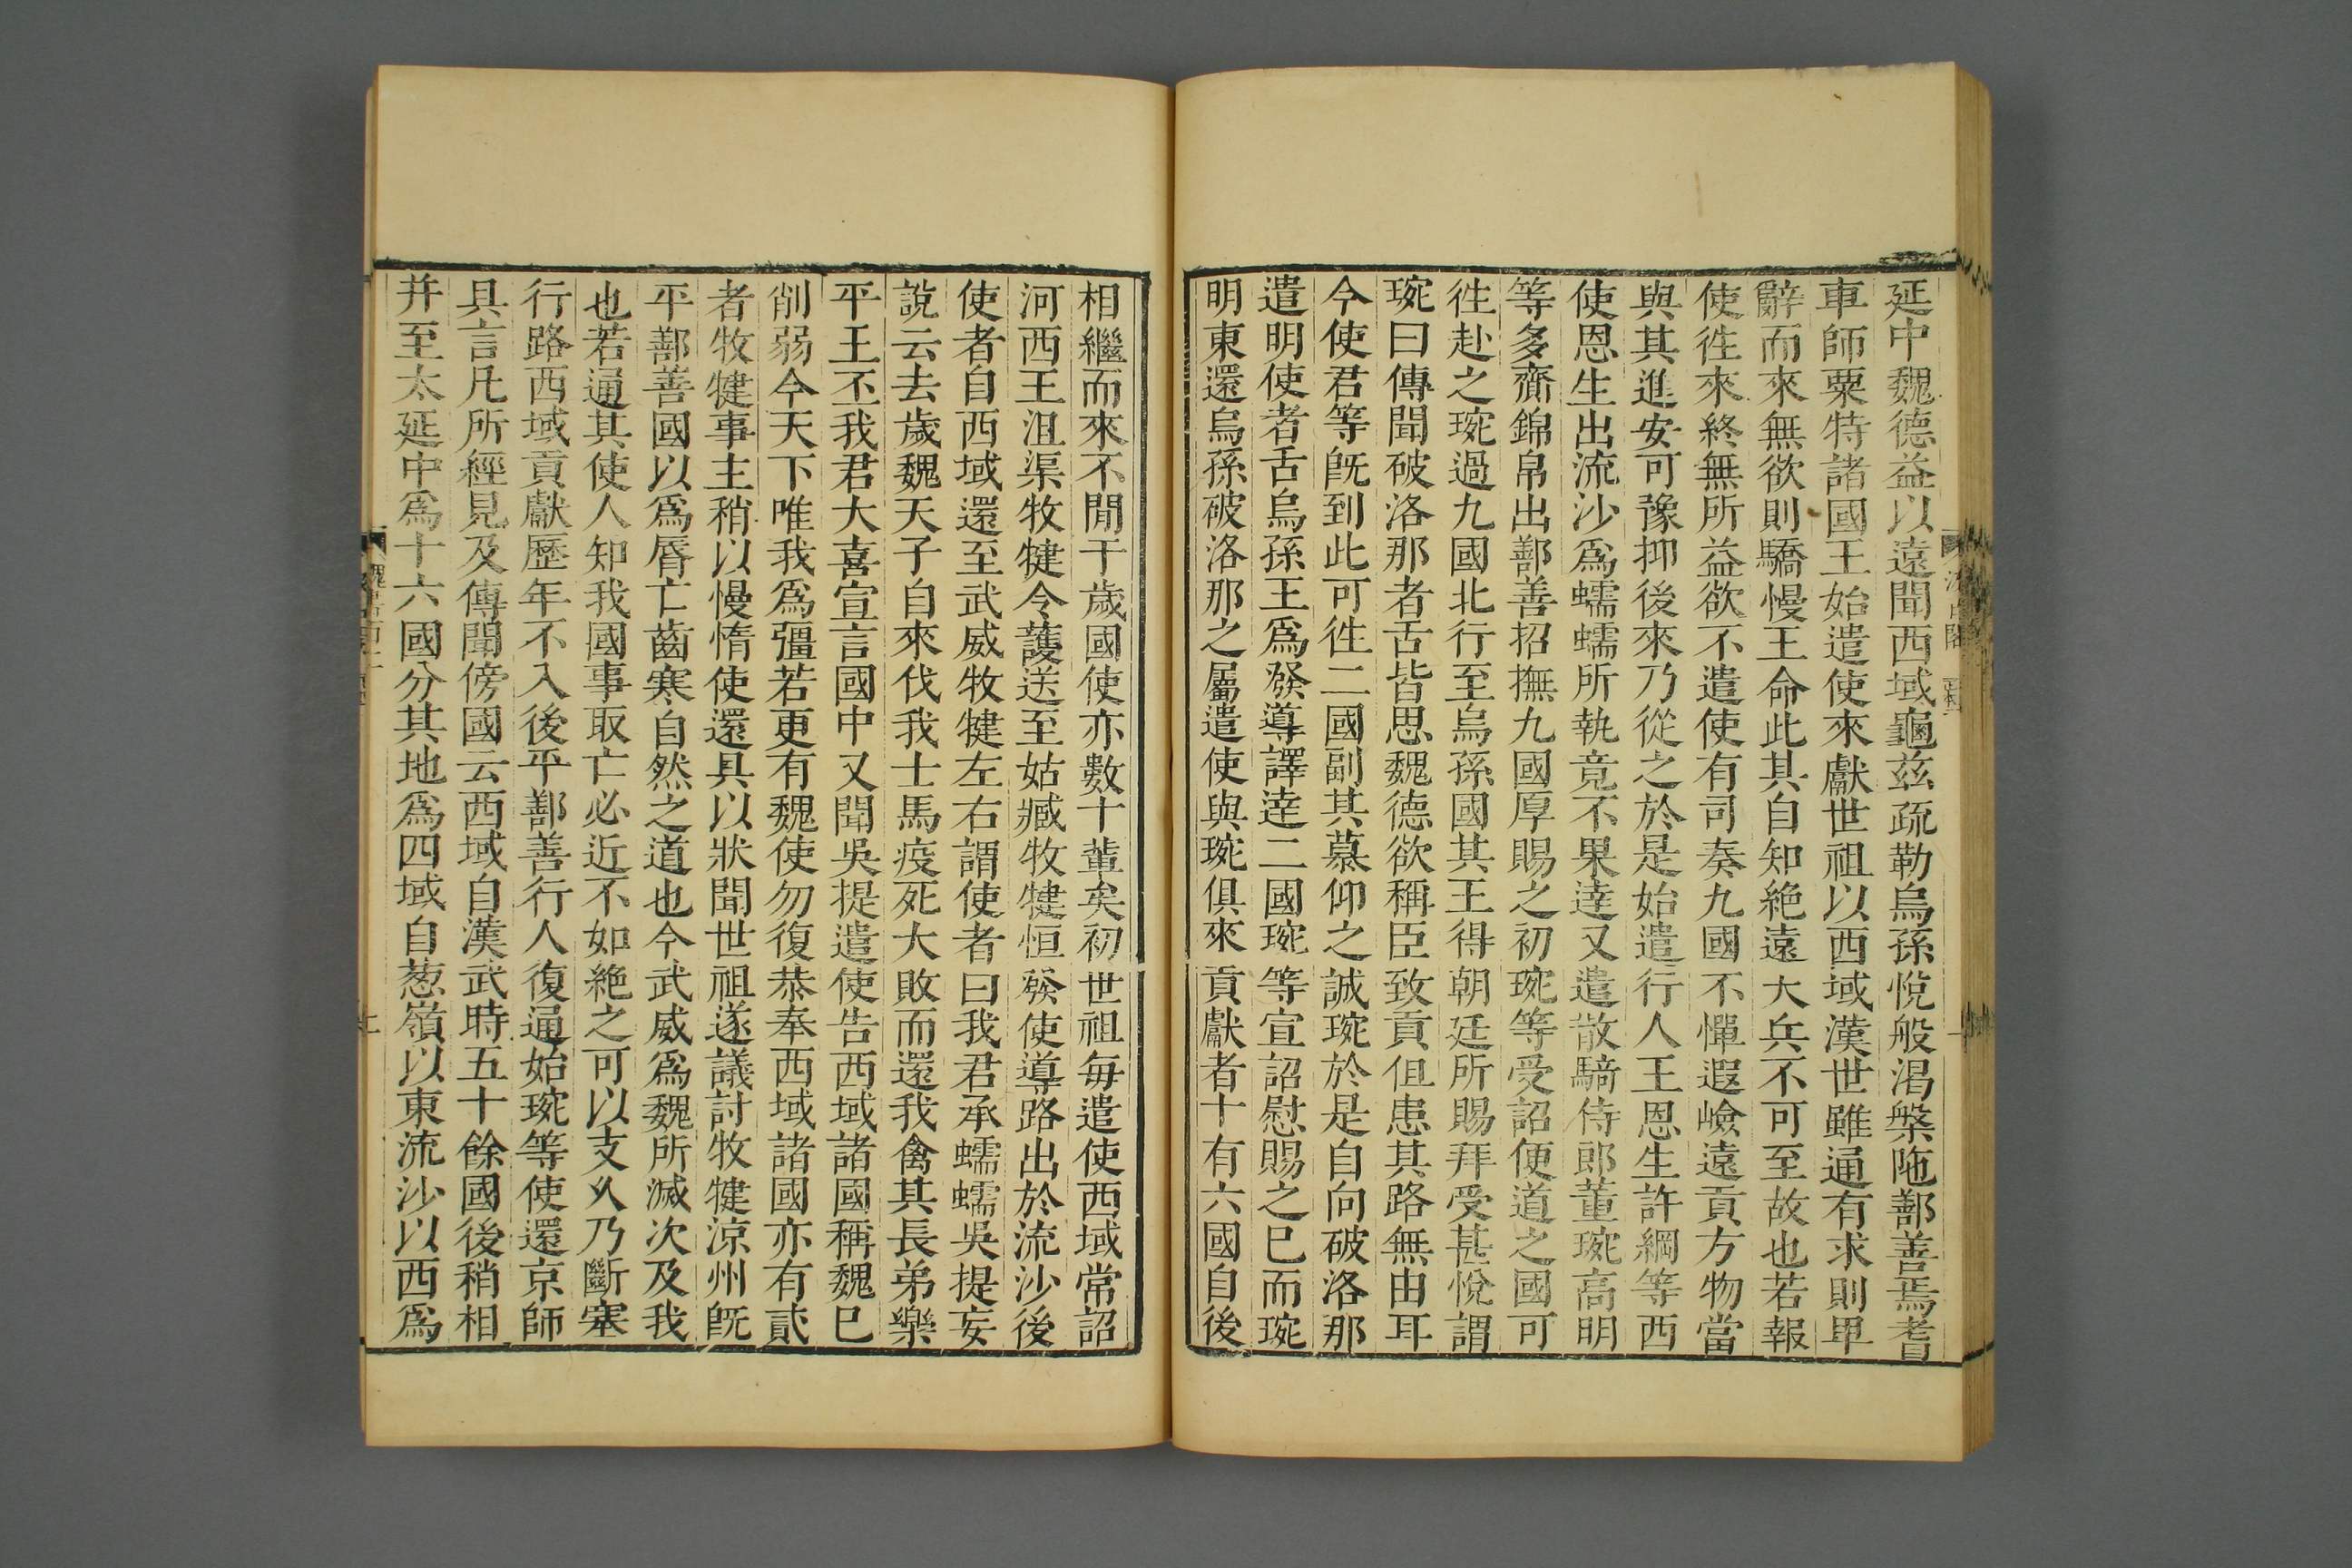 延中魏德益以遠聞西域龜茲疏勒烏孫悅般渴槃陁鄯善焉耆
車師粟特諸國王始遣使來獻世祖以西域漢世雖通有求則卑
辭而來無欲則驕慢王命此其自知絶遠大兵不可至故也若報
使徃來終無所益欲不遣使有司奏九國不憚遐嶮遠貢方物當
與其進安可豫抑後來乃從之於是始遣行人王恩生許綱等西
使恩生出流沙爲蠕蠕所執竟不果達又遣散騎侍郎董琬高明
等多齎錦帛出鄯善招撫九國厚賜之初琬等受詔便道之國可
徃赴之琬過九國北行至烏孫國其王得朝廷所賜拜受甚悅謂
琬曰傳聞破洛那者舌皆思魏德欲稱臣致貢但患其路無由耳
今使君等旣到此可徃二國副其慕仰之誠琬於是自向破洛那
遣明使者舌烏孫王爲發導譯達二國琬等宣詔慰賜之已而琬
明東還烏孫破洛那之屬遣使與琬俱來貢獻者十有六國自後
相繼而來不閒于歲國使亦數十輩矣初世祖每遣使西域常詔
河西王沮渠牧犍令護送至姑臧牧犍恒發使導路出於流沙後
使者自西域還至武威牧犍左右謂使者曰我君承蠕蠕吳提妄
說云去歲魏天子自來伐我士馬疫死大敗而還我禽其長弟樂
平王丕我君大喜宣言國中又聞吳提遣使告西域諸國稱魏已
削弱今天下唯我爲彊若更有魏使勿復恭奉西域諸國亦有貳
者牧犍事主稍以慢惰使還具以狀聞世祖遂議討牧犍涼州旣
平鄯善國以爲脣亡齒寒自然之道也今武威爲魏所滅次及我
也若通其使人知我國事取亡必近不如絶之可以支久乃斷塞
行路西域貢獻歷年不入後平鄯善行人復通始琬等使還京師
具言凡所經見及傳聞傍國云西域自漢武時五十餘國後稍相
并至太延中爲十六國分其地爲四域自葱嶺以東流沙以西爲